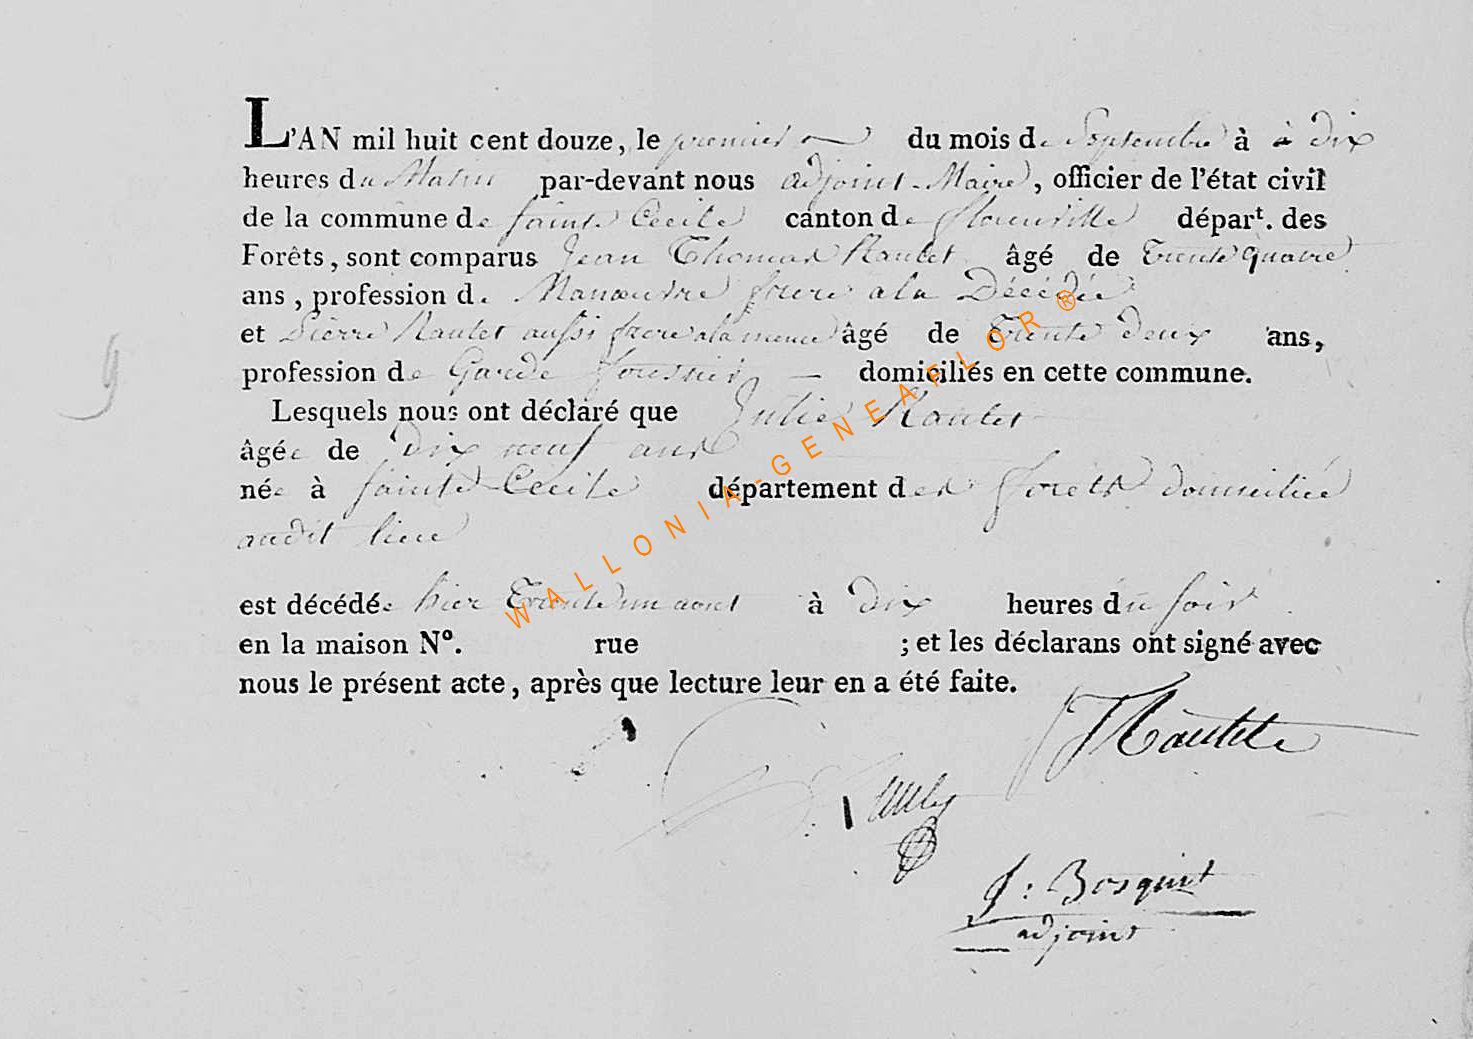 L'AN mil huit cent douze, le premier du mois de Septembre à à dix
heures du Matin par-devant nous adjoint-Maire, officier de l'état civil
de la commune de sainte Cécile canton de florenville départ. des
Forêts, sont comparus Jean Thomas Rautet âgé de trente quatre
ans, profession de Manœuvre frere a la Décédée
et Pierre Rautet aussi frere a la meme âgé de trente deux ans,
profession de Garde foresier, — domiciliés en cette commune.
Lesquels nous ont déclaré que Julie Rautet
âgée de dix neuf ans
née à sainte Cécile département des forêts domiciliée
audit lieu
est décédée hier trente un aout à dix heures du soir
en la maison Nº. rue ; et les déclarans ont signé avec
nous le présent acte, après que lecture leur en a été faite.
9
J: Bosquet
adjoint
WALLONIA-GENEAFLOR®